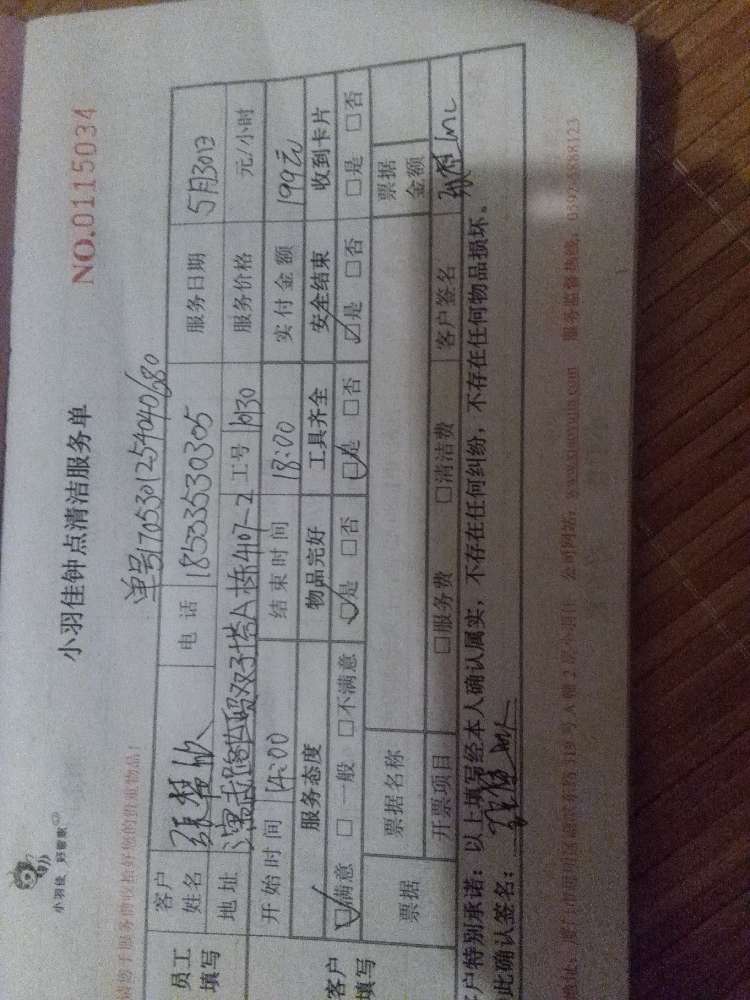 小羽佳 好管家
小羽佳钟点清洁服务单
NO.0115034
单号170530125404068０
请您于服务前收拾好您的贵重物品！
员工填写
客户姓名 电话 18535530305 服务日期 5月30日
地址 双子塔A栋407-2 工号 10130 服务价格 元/小时
开始时间 14:00 结束时间 18:00 实付金额 199元
客户填写
服务态度 物品完好 工具齐全 安全结束 收到卡片
☑满意 □一般 □不满意 ☑是 □否 ☑是 □否 ☑是 □否 □是 □否
票据 票据名称 票据金额
开票项目 □服务费 □清洁费 客户签名
客户特别承诺：以上填写经本人确认属实，不存在任何纠纷，不存在任何物品损坏。
此确认签名：
公司网站：www.xiaoyujia.com 服务监督热线：